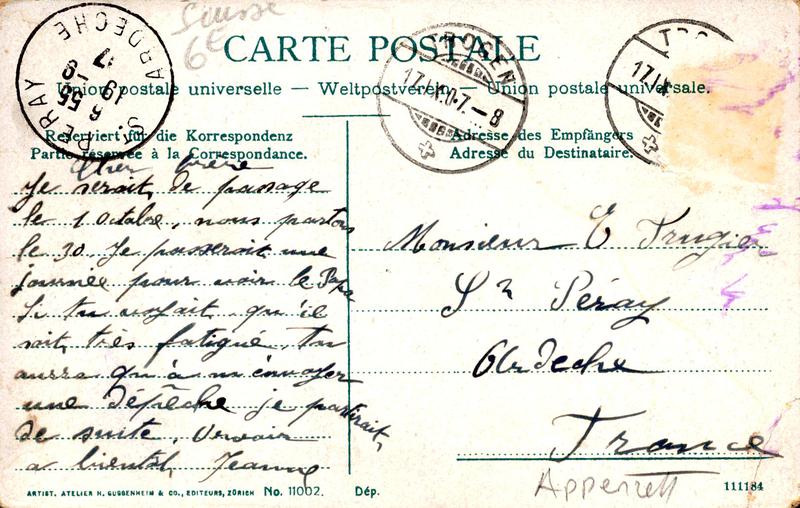 Suisse
6E
CARTE POSTALE
Union postale universelle — Weltpostverein — Union postale universelle.
ST PERAY
ARDECHE
TROGEN
17.IX.
7-8
TROG
17.IX
Reserviert für die Korrespondenz
Partie réservée à la Correspondance.
Adresse des Empfängers
Adresse du Destinataire.
Cher Frère
Je serait de passage
le 1 octobre, nous partons
le 30. Je passerait une
journée pour voir le Papa
Si tu voyait qu'il
soit très fatigué, tu
auras qu'à m'envoyer
une dépêche je partirait
de suite,
a bientôt, Jeanne
Monsieur E Trugier
St Péray
Ardeche
France
Appenzell
ARTIST. ATELIER H. GUGGENHEIM & CO., EDITEURS, ZÜRICH No. 11002. Dép.
111184